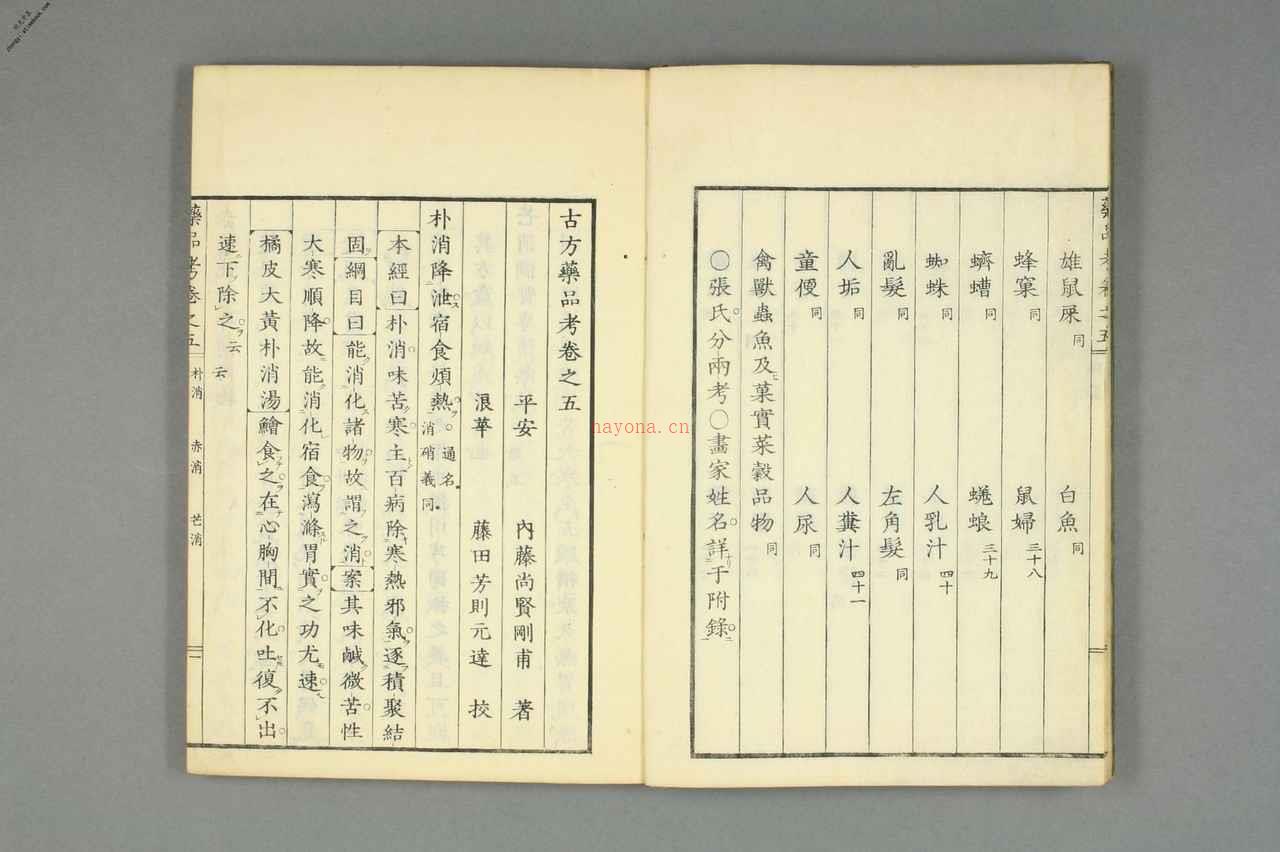 雄鼠屎同　白魚同
蜂窠同　鼠婦三十八
蠐螬同　蜣蜋三十九
蜘蛛同　人乳汁四十
亂髮同　左角髮同
人垢同　人糞汁四十一
童便同　人尿同
禽獸蟲魚及菓實菜穀品物同
○張氏分兩考○畫家姓名詳于附錄
古方藥品考卷之五
平安　內藤尚賢剛甫　著
浪華　藤田芳則元達　校
朴消降泄宿食煩熱○通名消硝義同
本經曰朴消味苦寒主百病除寒熱邪氣逐積聚結
固綱目曰能消化諸物故謂之消案其味鹹微苦性
大寒順降故能消化宿食瀉滌胃實之功尤速
橘皮大黃朴消湯鱠食之在心胸間不化吐復不出
速下除之云云
藥品考卷之五　朴消　赤消　芒消
nayona.cn